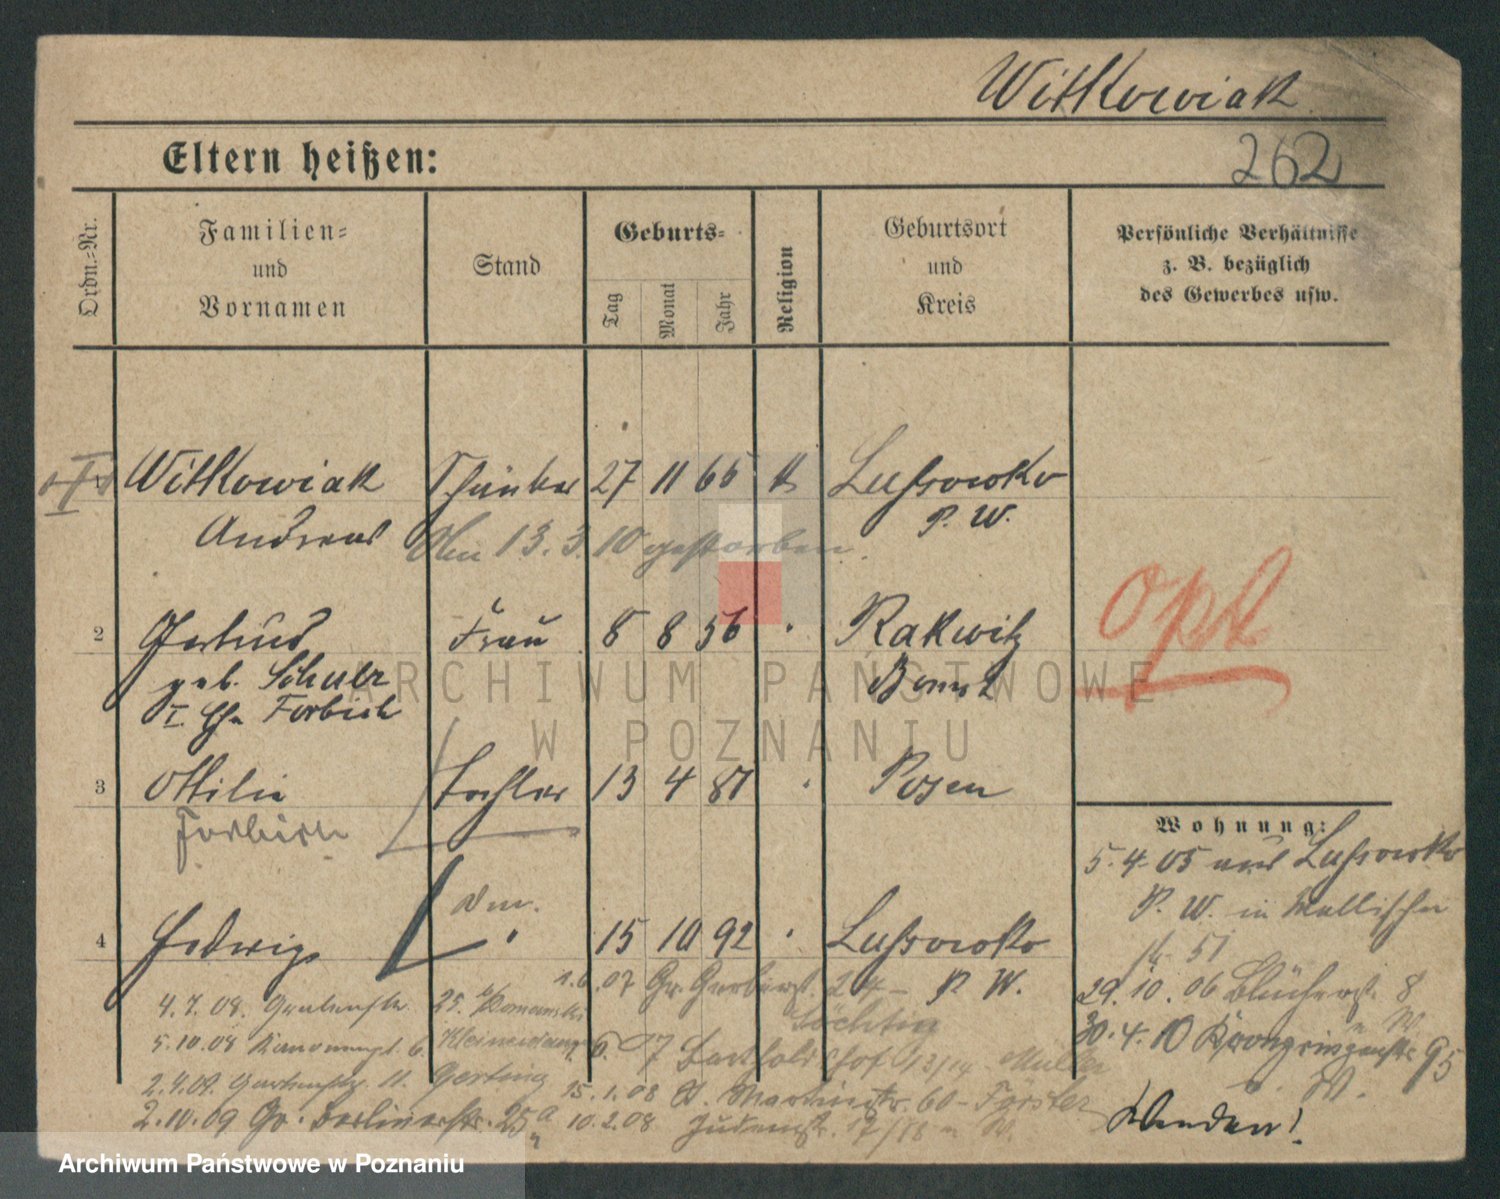 Witkowiak
262
Eltern heißen:
Ordn.-Nr.
Familien- und Vornamen
Stand
Geburts-
Tag
Monat
Jahr
Religion
Geburtsort und Kreis
Persönliche Verhältnisse z. B. bezüglich des Gewerbes usw.
Witkowiak 27 11 65 k Lussowko
Andreas P. W.
13. 3. 10 gestorben.
2 Gertrud Frau 8 8 56 Rakwitz
geb. Schulz Bomst
I. Ehe Forbich
opt
3 Ottilie Tochter 13 4 87 Posen
Wohnung:
5.4.05 aus Lussowko
P. W. in Wallischei
51
4 Hedwig 15 10 92 Lussowko
P. W.
1.6.07 Gr. Gerberst. 24
4.7.08. Grabenstr. 25. b/
29.10.06 Blücherst. 8
5.10.08 6.
30.4.10 Kronprinzenstr. 95
6. 07 Bartholdshof 13/14 Müller
2.4.09. Gartenstr. 11. Gersting
15.1.08 St. Martinstr. 60 - Förster
2.10.09 Gr. Berlinerstr. 25a
10.2.08 Judenstr. 17/18 n W.
Wenden!
ARCHIWUM PAŃSTWOWE
W POZNANIU
Archiwum Państwowe w Poznaniu